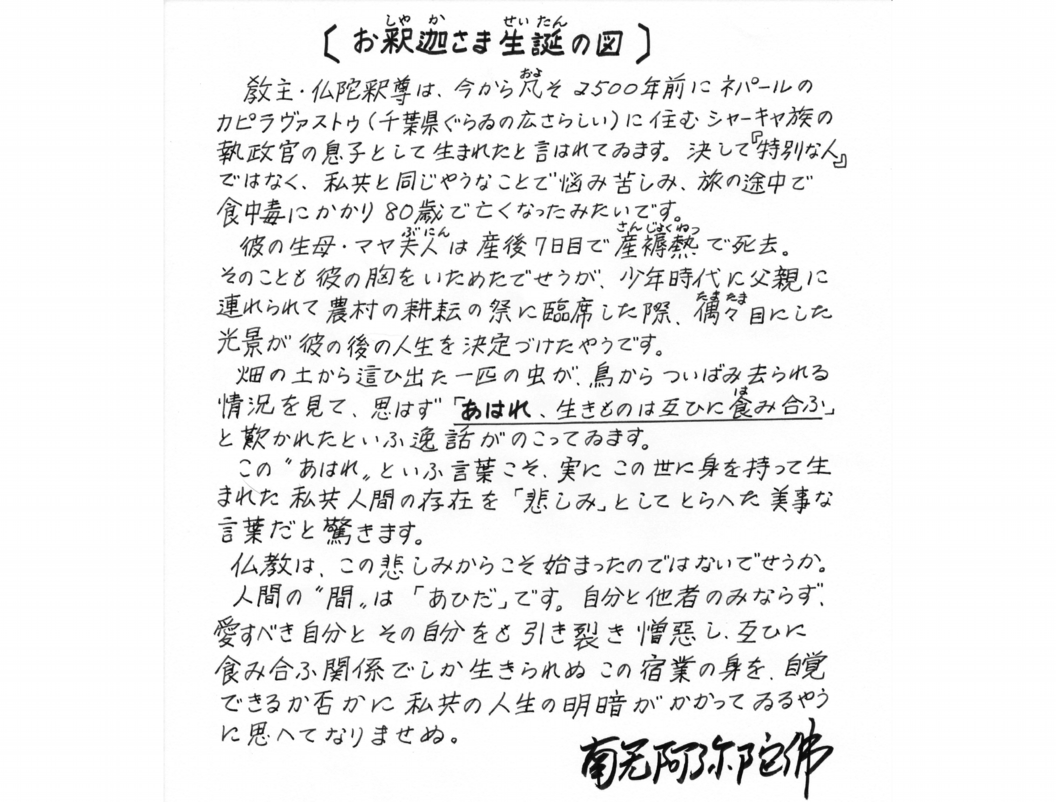 〔お釈迦さま生誕の図〕
しゃ か せい たん
教主・仏陀釈尊は、今から凡そ2500年前にネパールの
およ
カピラヴァストゥ(千葉県ぐらゐの広さらしい)に住むシャーキャ族の
執政官の息子として生まれたと言はれてゐます。決して『特別な人』
ではなく、私共と同じやうなことで悩み苦しみ、旅の途中で
食中毒にかかり80歳で亡くなったみたいです。
彼の生母・マヤ夫人は産後7日目で産褥熱で死去。
ぶにん さんじょくねつ
そのことも彼の胸をいためたでせうが、少年時代に父親に
連れられて農村の耕耘の祭に臨席した際、偶々目にした
たまたま
光景が彼の後の人生を決定づけたやうです。
畑の土から這ひ出た一匹の虫が、鳥からついばみ去られる
情況を見て、思はず「あはれ、生きものは互ひに食み合ふ」
は
と歎かれたといふ逸話がのこってゐます。
この〝あはれ〟といふ言葉こそ、実にこの世に身を持って生
まれた私共人間の存在を「悲しみ」としてとらへた美事な
言葉だと驚きます。
仏教は、この悲しみからこそ始まったのではないでせうか。
人間の〝間〟は「あひだ」です。自分と他者のみならず、
愛すべき自分とその自分をも引き裂き憎悪し、互ひに
食み合ふ関係でしか生きられぬこの宿業の身を、自覚
できるか否かに私共の人生の明暗がかかってゐるやう
に思へてなりませぬ。
南无阿弥陀佛